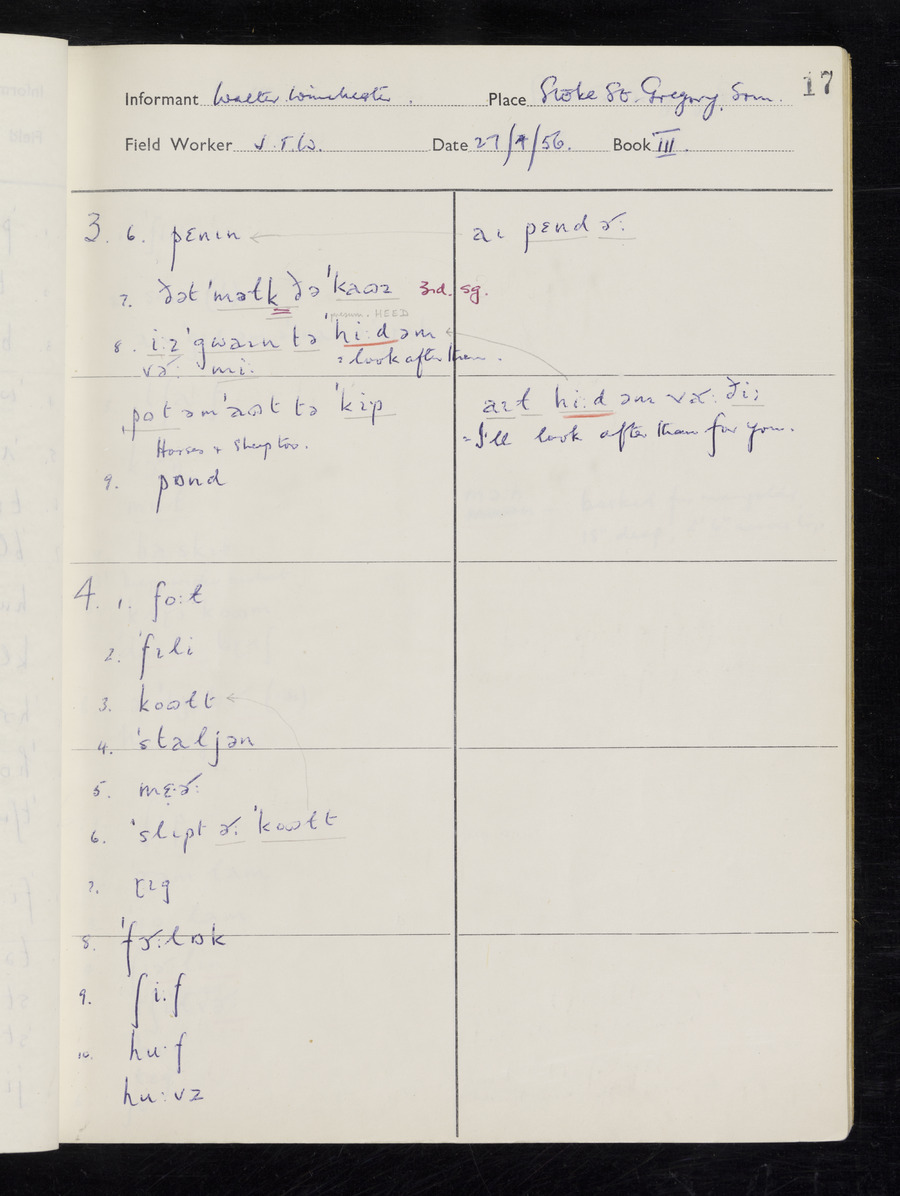 17
Informant Walter Winchester. Place Stoke St. Gregory, Som.
Field Worker J.T.W. Date 27/4/56. Book III.
3. 6. pɛnɪn aɪ pɛndɚː
7. ðət ˈməɫk ðə ˈkaʊz 3rd. sg.
presum. HEED
8. iːz ˈgwaɪn tə ˈhiːd əm
vɚː miː = look after them.
ˌpət əm ˈaʊt tə ˈkip aɪɫ hiːd əm vɚː ðiː
Horses & Sheep too. = I'll look after them for you.
9. pɒnd
4. 1. foːɫ
2. ˈfɪli
3. koʊɫt
4. ˈstaljən
5. mɛ̣ɚː
6. ˈslɪpt ɚː ˈkoʊɫt
7. rɪg
8. ˈfɚːlɒk
9. ʃiːf
10. huˑf
huːvz